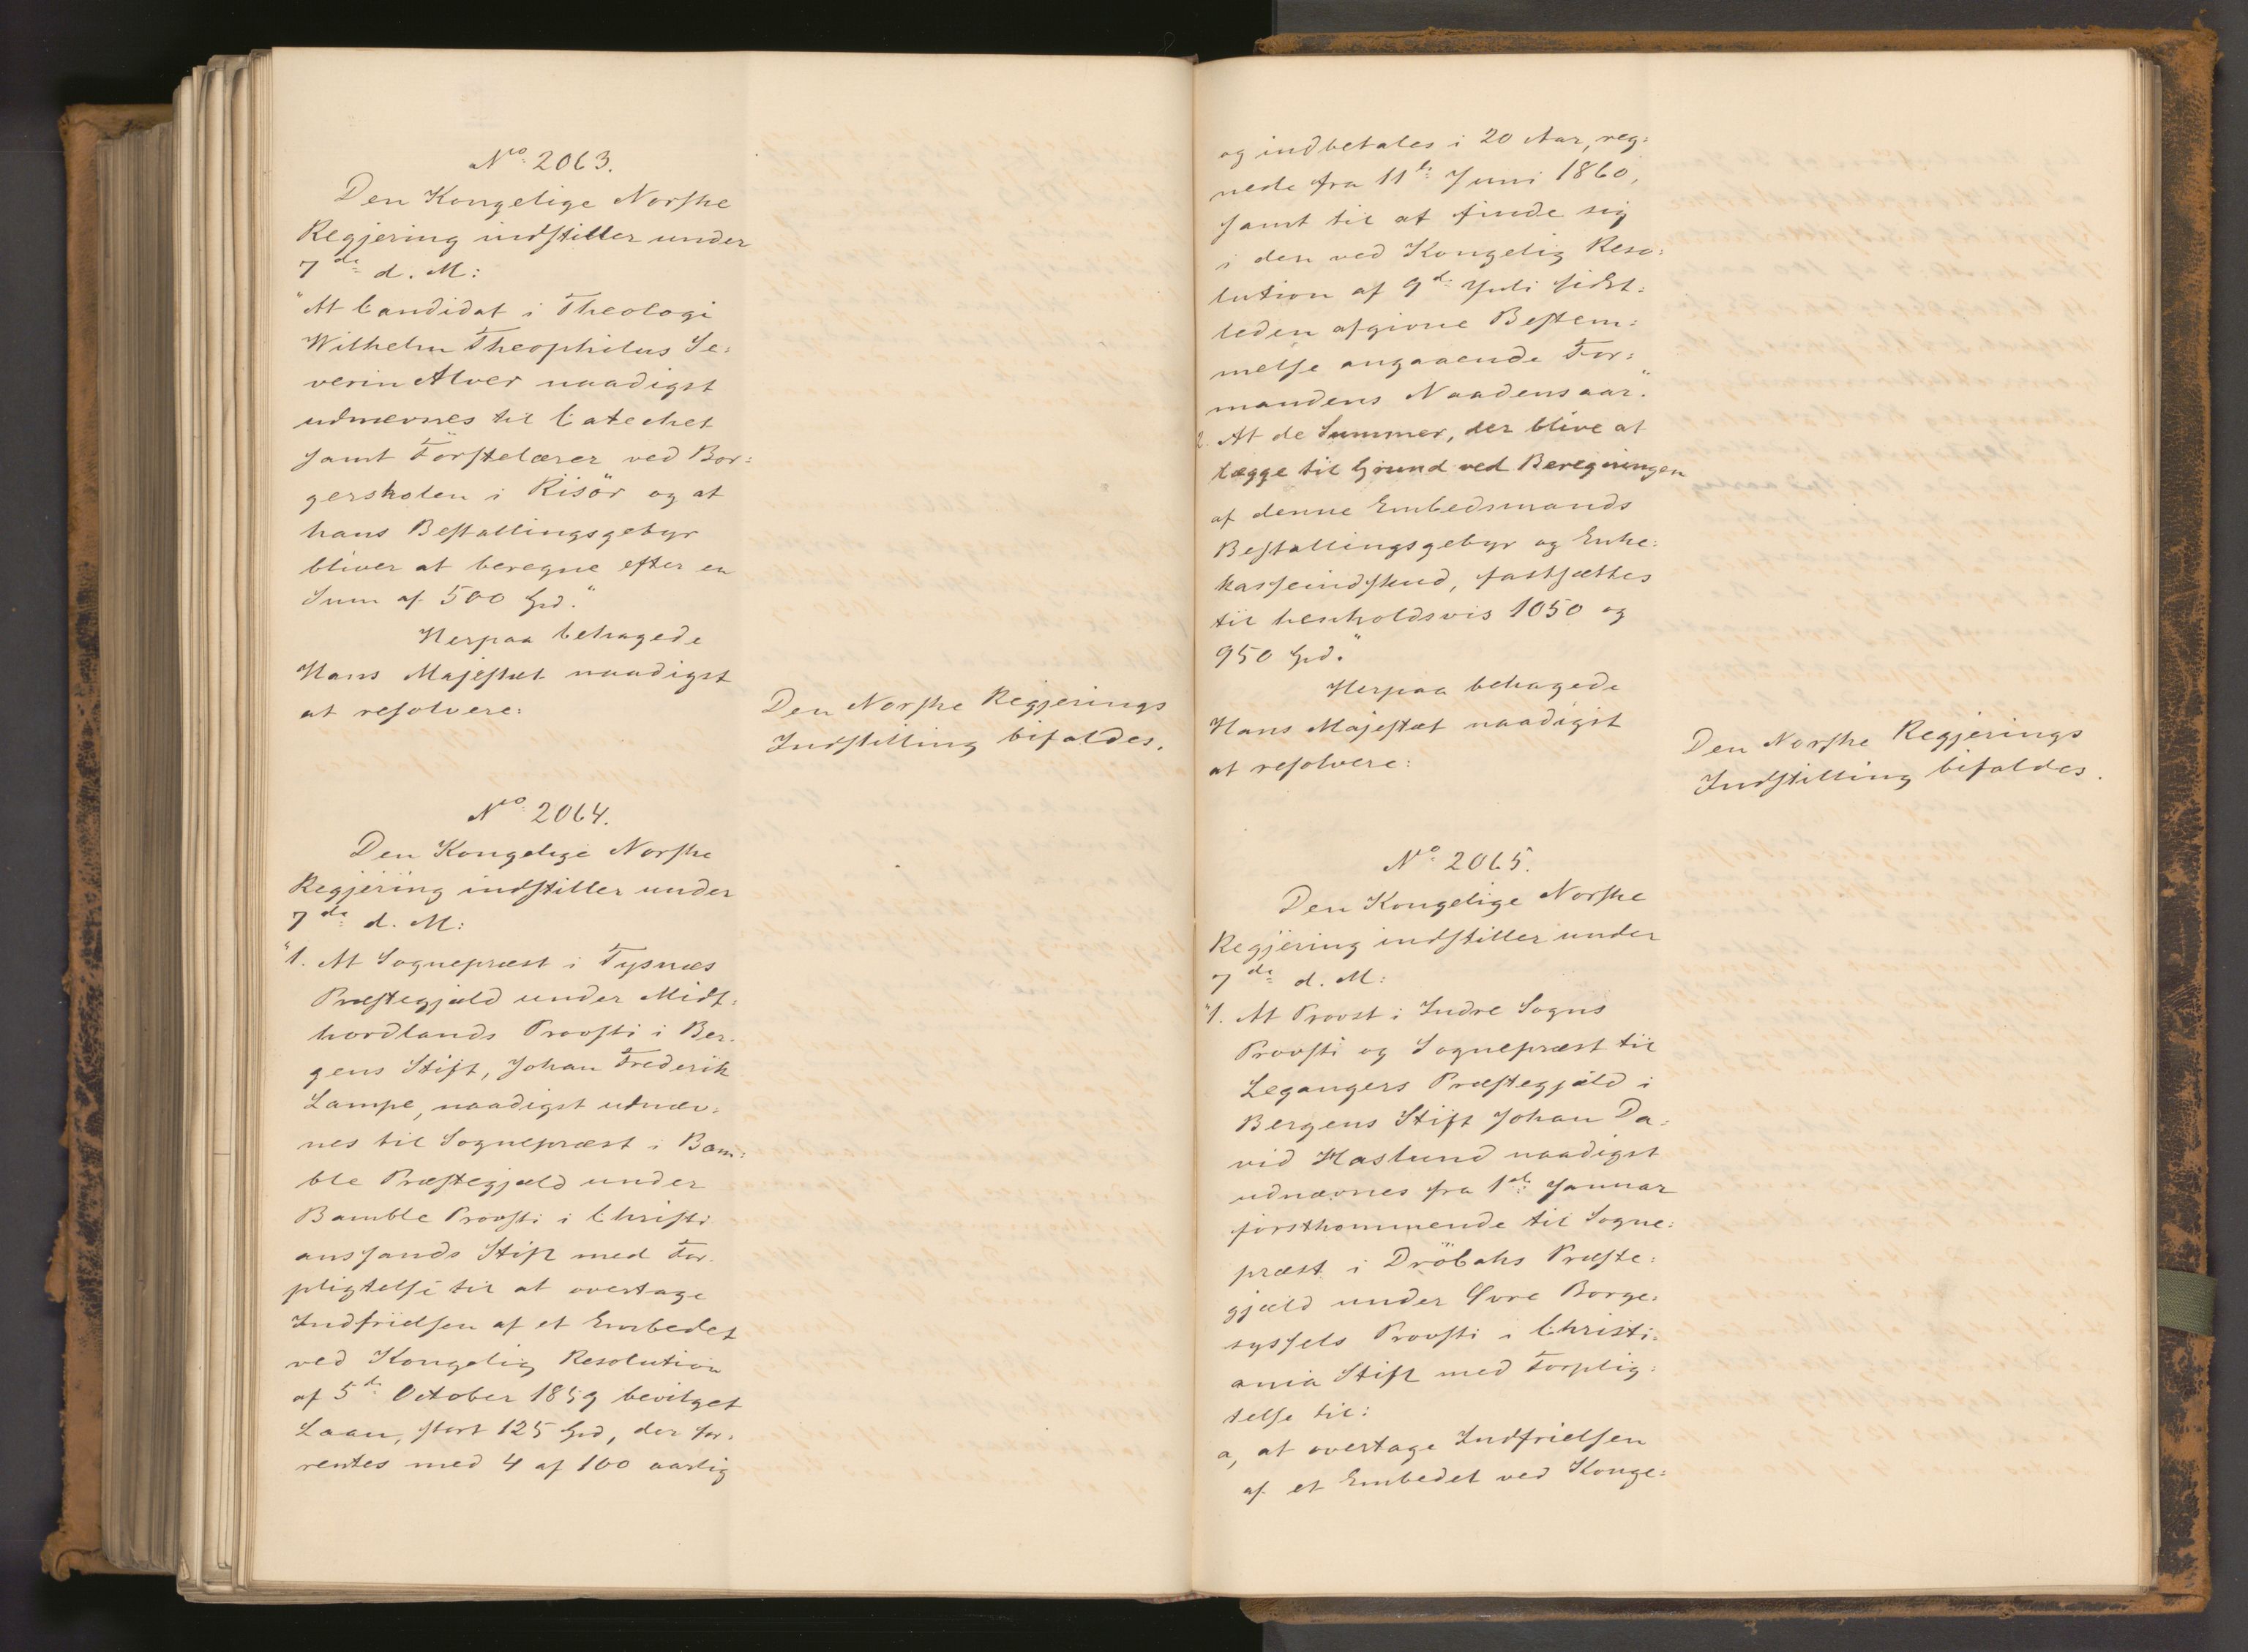 No 2063.
Den Kongelige Norske
Regjering indstiller under
7de d. M:
"At Candidat i Theologi
Wilhelm Theophilus Se:
verin Alver naadigst
udnævnes til Catechet
samt Förstelærer ved Bor:
gerskolen i Risör og at
hans Bestallingsgebyr
bliver at beregne efter en
Sum af 500 Spd."
Herpaa behagede
Hans Majestæt naadigst
at resolvere:
Den Norske Regjerings
Indstilling bifaldes.
No 2064.
Den Kongelige Norske
Regjering indstiller under
7de d. M:
"1. At Sognepræst i Tysnæs
Præstegjæld under Midt:
hordlands Provsti i Ber:
gens Stift, Johan Frederik
Lampe, naadigst udnæv:
nes til Sognepræst i Bam:
ble Præstegjæld under
Bamble Provsti i Christi
anssands Stift med For:
pligtelse til at overtage
Indfrielsen af et Embedet
ved Kongelig Resolution
af 5te October 1859 bevilget
Laan, stort 125 Spd, der for:
rentes med 4 af 100 aarlig
og indbetales i 20 Aar, reg:
nede fra 11te Juni 1860,
samt til at finde sig
i den ved Kongelig Reso:
lution af 9de Juli sidst:
leden afgivne Bestem:
melse angaaende For:
mandens Naadensaar."
2. At de Summer, der blive at
lægge til Grund ved Beregningen
af denne Embedsmands
Bestallingsgebyr og Enke:
kasseindskud, fastsættes
til henholdsvis 1050 og
950 Spd."
Herpaa behagede
Hans Majestæt naadigst
at resolvere:
Den Norske Regjerings
Indstilling bifaldes.
No 2065.
Den Kongelige Norske
Regjering indstiller under
7de d. M:
"1. At Provst i Indre Sogns
Provsti og Sognepræst til
Legangers Præstegjæld i
Bergens Stift Johan Da:
vid Haslund naadigst
udnævnes fra 1ste Januar
førstkommende til Sogne:
præst i Dröbaks Præste:
gjæld under Øvre Borge:
syssels Provsti i Christi:
ania Stift med Forplig:
telse til:
a, at overtage Indfrielsen
af et Embedet ved Konge: